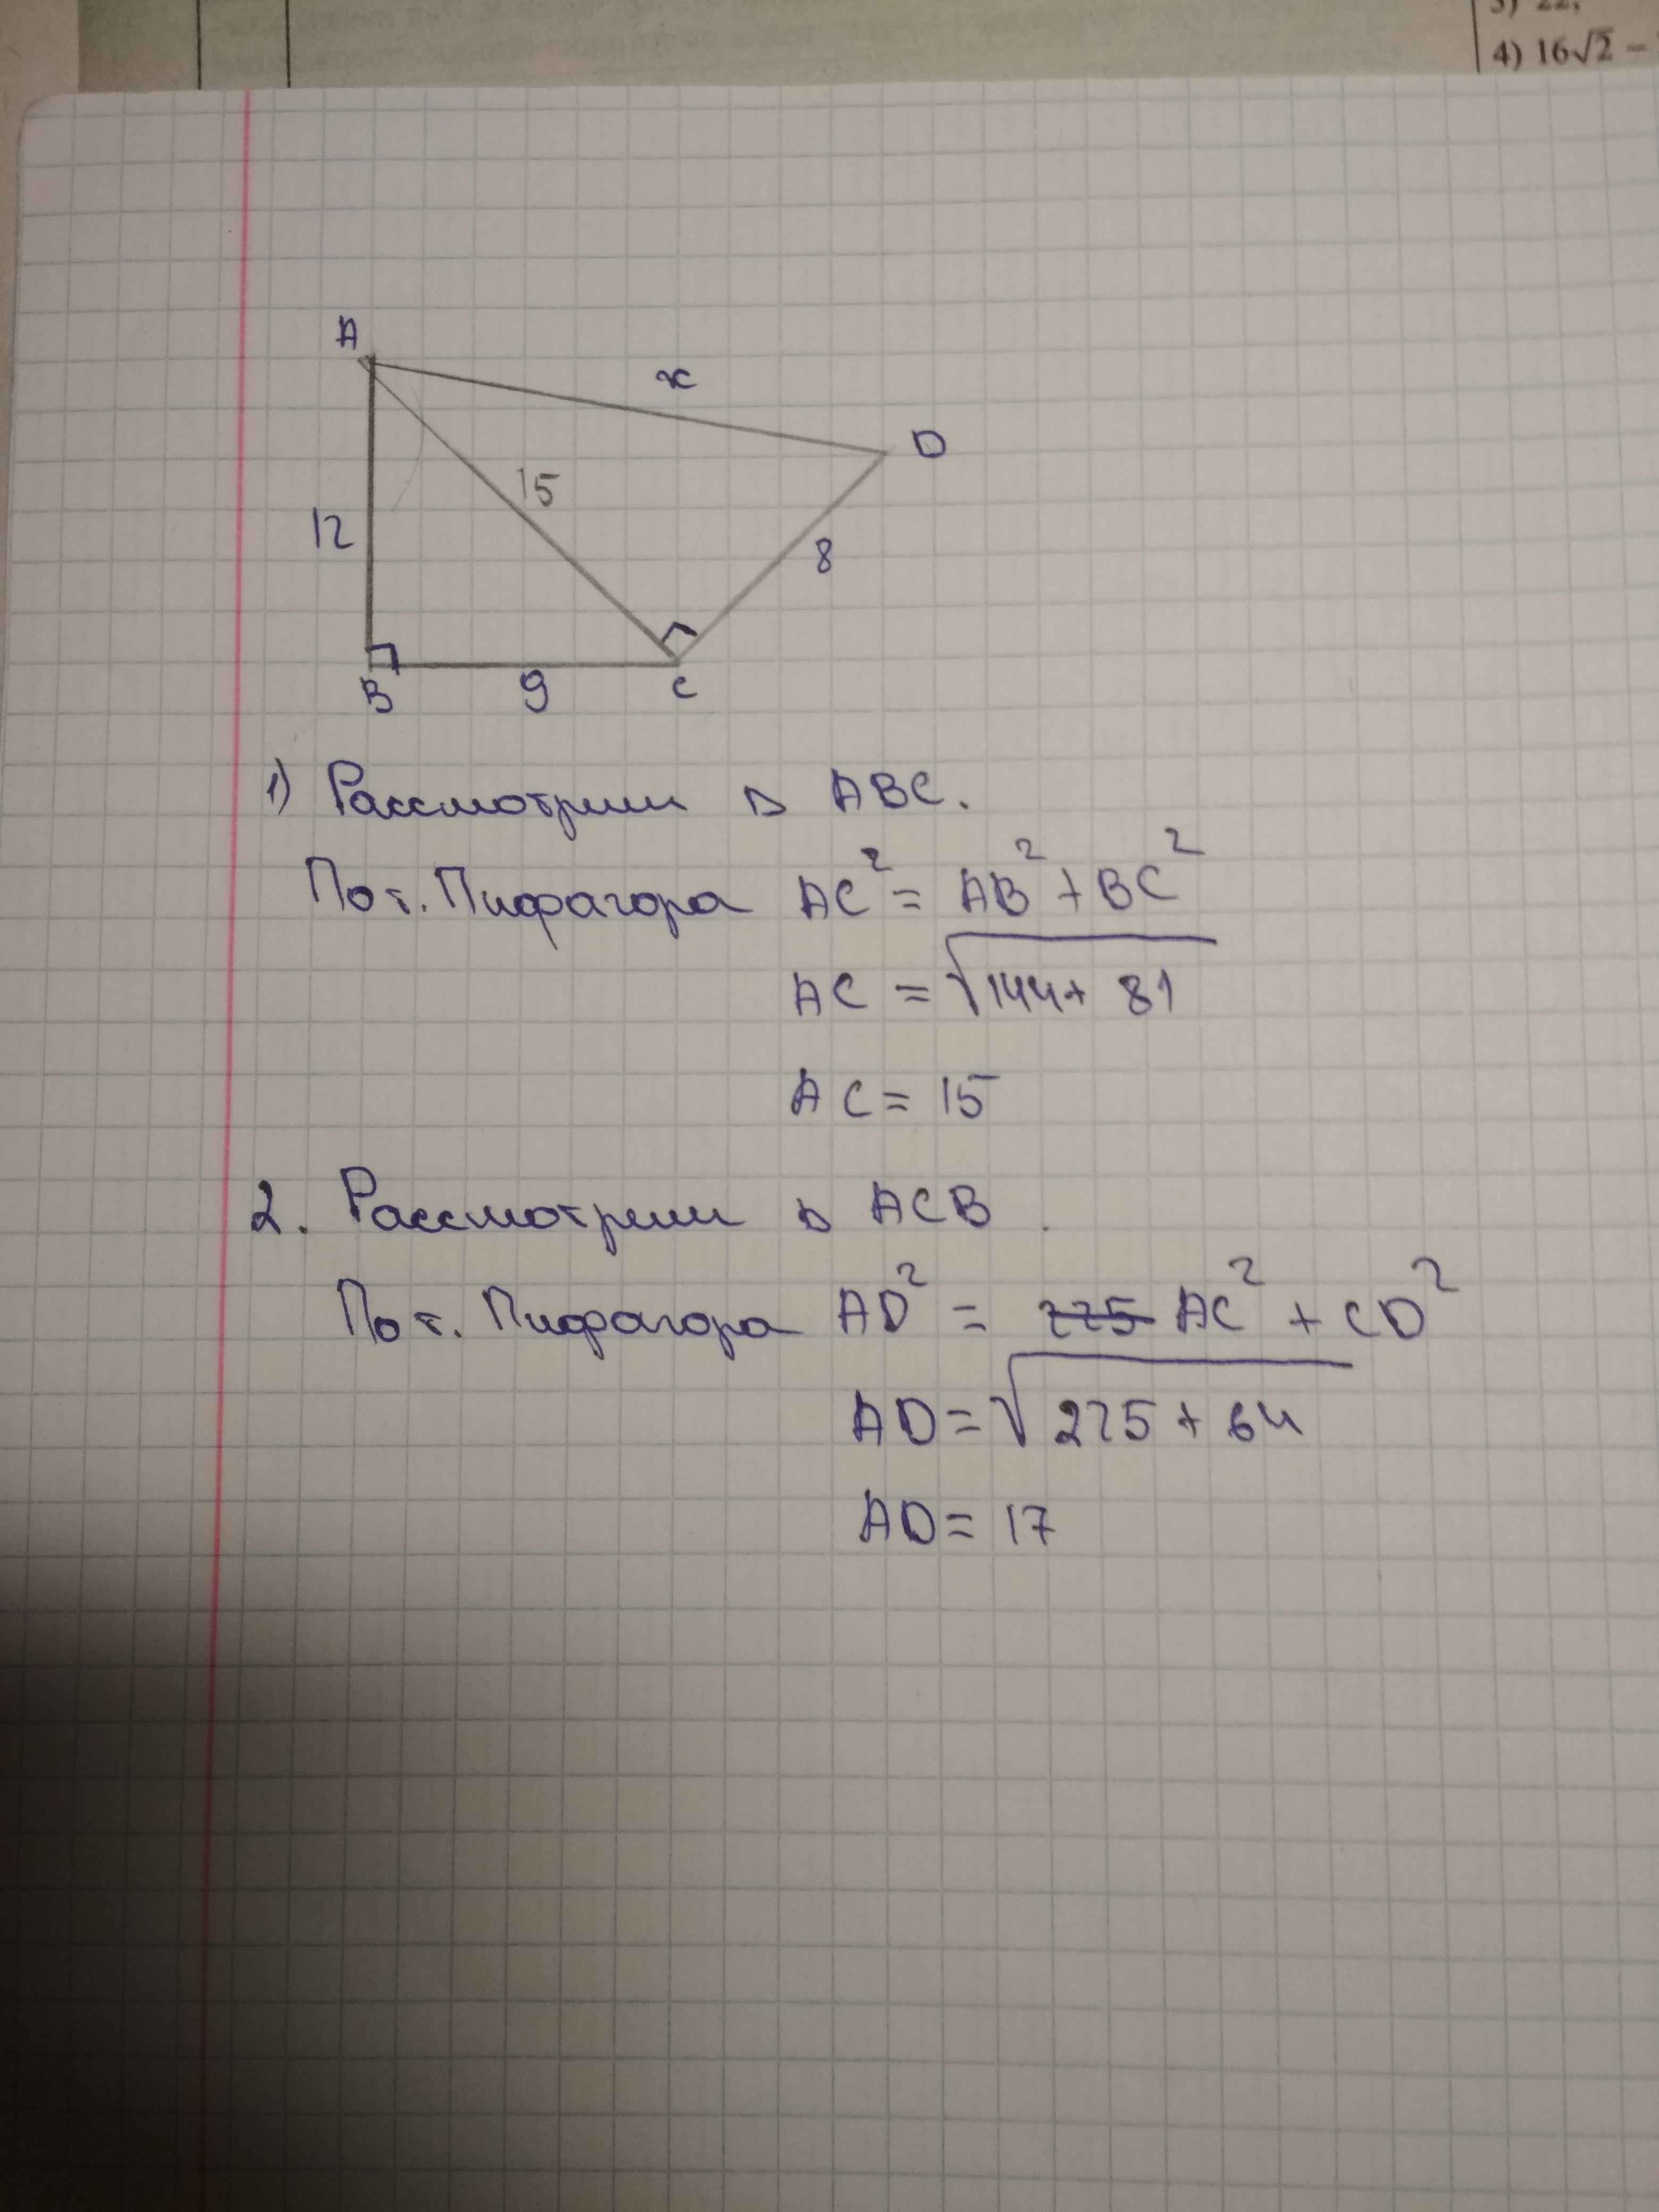 4) 16√2 –
A
x
D
15
12
8
B
9
C
1) Рассмотрим △ ABC.
По т. Пифагора AC² = AB² + BC²
AC = √144 + 81
AC = 15
2. Рассмотрим △ ACB.
По т. Пифагора AD² = 225 AC² + CD²
AD = √225 + 64
AD = 17